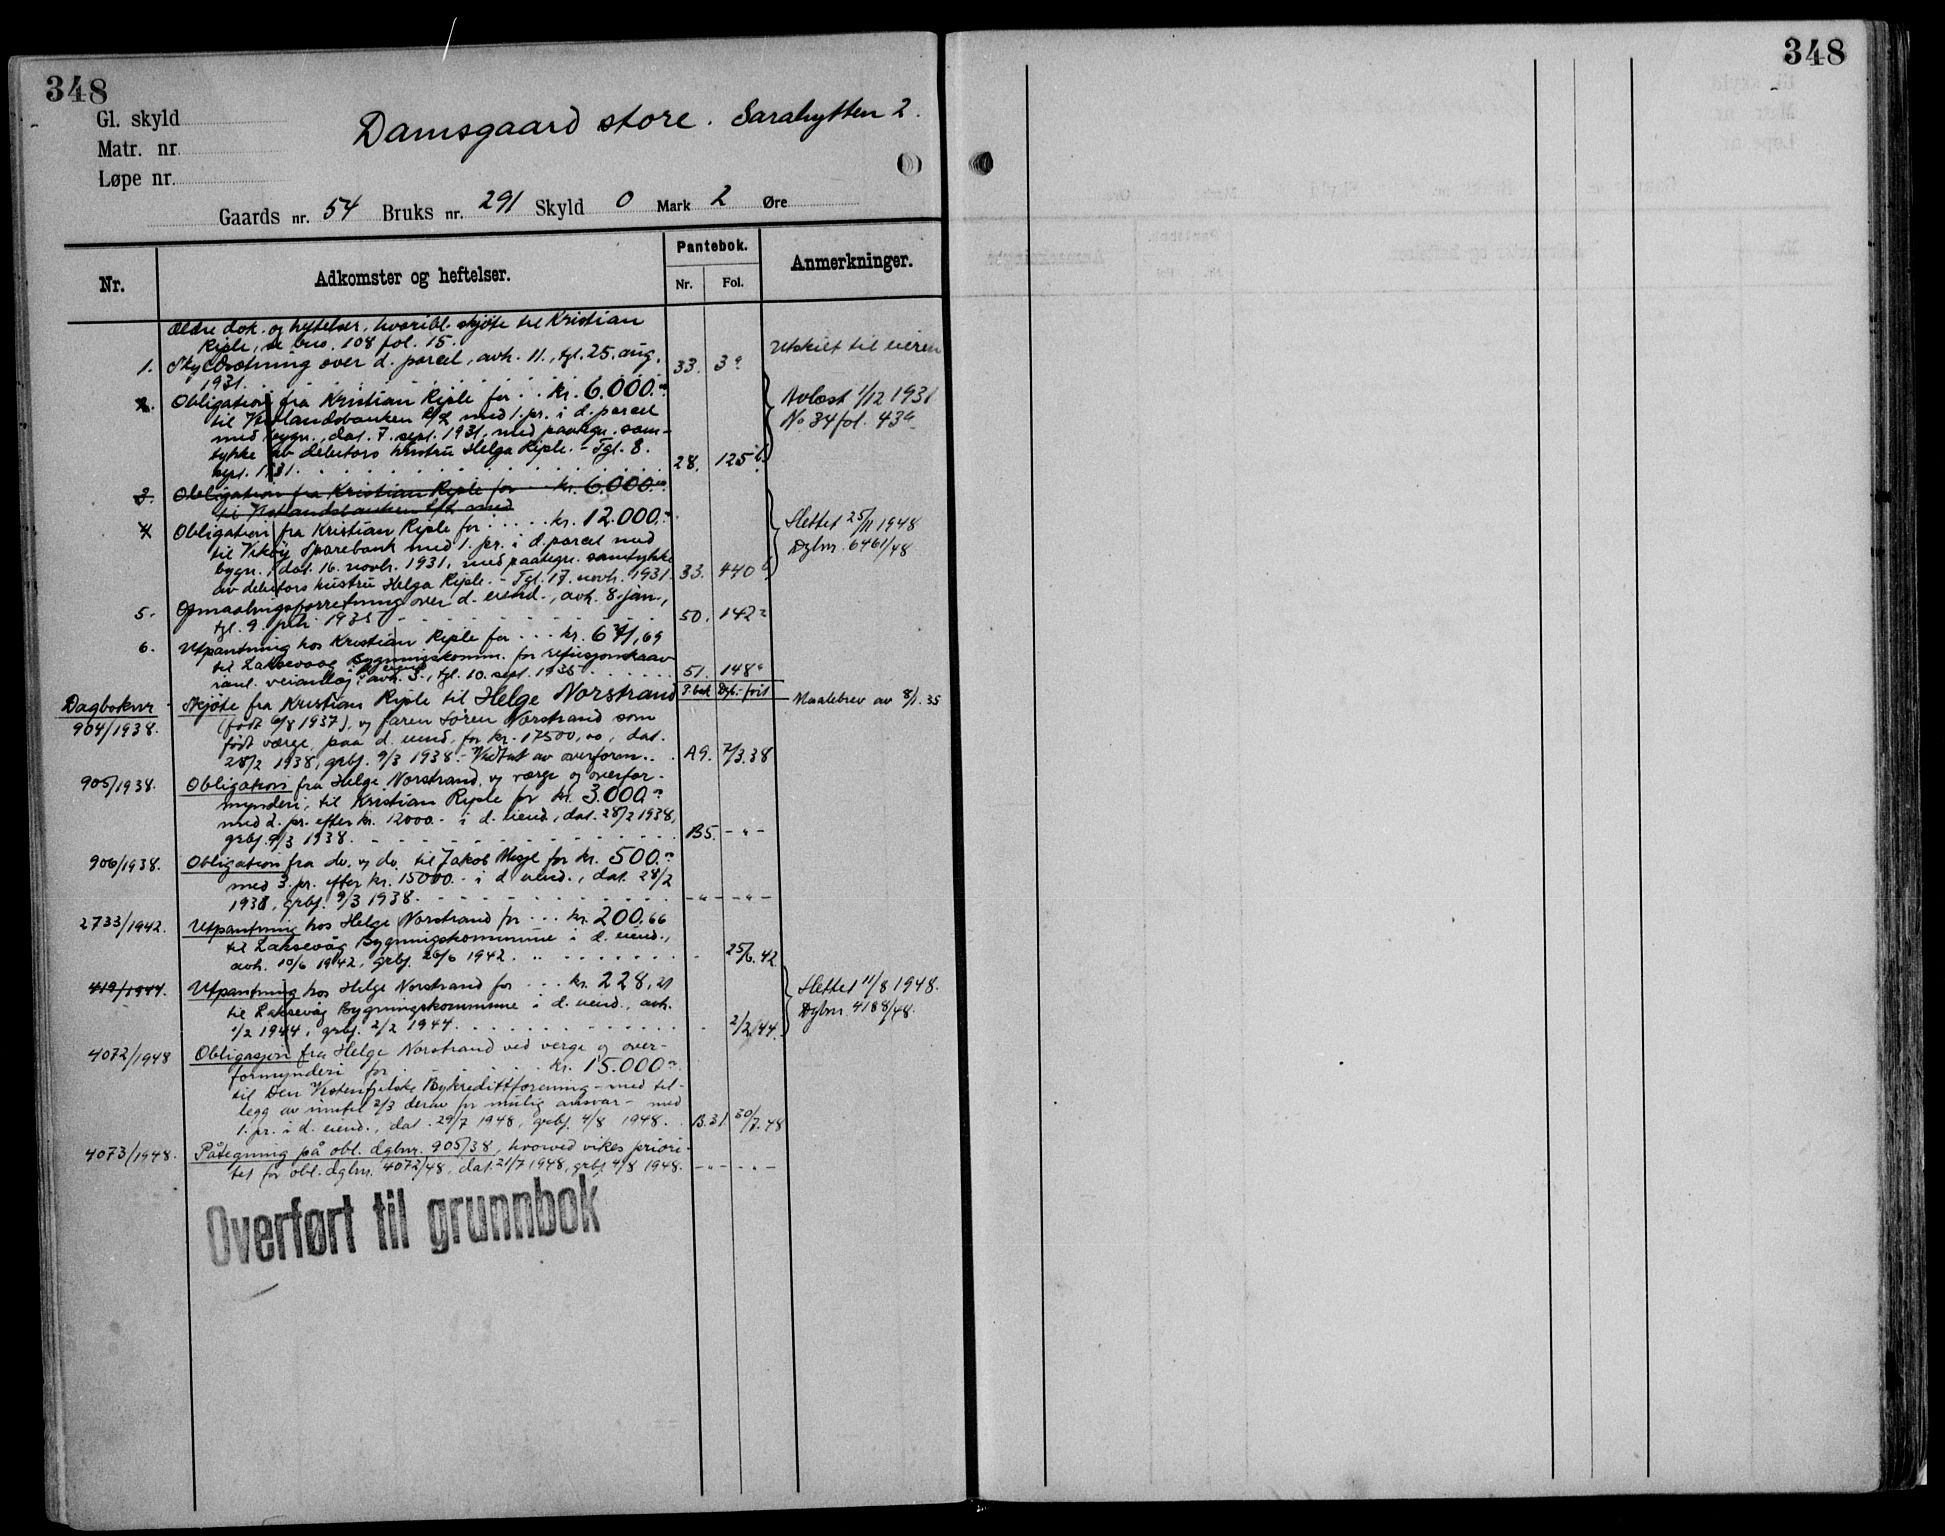 348
348
Gl. skyld
Matr. nr.
Løpe nr.
Damsgaard store. Sarahytten 2.
Gaards nr. 54 Bruks nr. 291 Skyld 0 Mark 2 Øre
Nr.
Adkomster og heftelser.
Pantebok.
Nr. Fol.
Anmerkninger.
Ældre dok. og heftelser, hvoribl. skjøte til Kristian
Riple, se bno. 108 fol. 15.
1. Skyldsætning over d. parcel, avh. 11., tgl. 25. aug. 33. 3a Utskilt til eieren
1931.
2. Obligation fra Kristian Riple for kr. 6.000.-
til Vestlandsbanken L/L med 1. pr. i d. parcel
med bygn., dat. 7. sept. 1931, med paategn. sam-
tykke av debitors hustru Helga Riple. - Tgl. 8.
sept. 1931. 28. 125b
Avlæst 1/12 1931
No 34 fol. 43a
3. Obligation fra Kristian Riple for kr. 6.000.-
til Vestlandsbanken L/L med
4. Obligation fra Kristian Riple for kr. 12.000.-
til Vikøy Sparebank med 1. pr. i d. parcel med
bygn., dat. 16. novb. 1931, med paategn. samtykke
av debitors hustru Helga Riple. - Tgl. 17. novb. 1931. 33. 440b
Slettet 25/11 1948
Dgbnr. 6461/48
5. Opmaalingsforretning over d. eiend., avh. 8. jan.,
tgl. 9. 1935 50. 142a
6. Utpantning hos Kristian Riple for kr. 671,69
til Laksevaag Bygningskomm. for refusjonskrav
avh. 3., tgl. 10. sept. 1935 51. 148a
P.bok Dgb.-ført
Dagboknr
904/1938. Skjøte fra Kristian Riple til Helge Norstrand Maalebrev av 8/1.35
(født 6/8 1937), v/ faren Søren Norstrand som
født værge, paa d. eiend. for kr. 17500,00, dat.
28/2 1938, grbf. 9/3 1938. - Vedtat av overform. A9. 7/3.38
905/1938. Obligation fra Helge Norstrand, v/ værge og overfor-
mynderi, til Kristian Riple for kr. 3.000.-
med 2. pr. efter kr. 12000.- i d. eiend., dat. 28/2 1938,
grbf. 9/3 1938. B5. - " -
906/1938. Obligation fra do. v/ do. til Jakob Misje for kr. 500.-
med 3. pr. efter kr. 15000.- i d. eiend., dat. 28/2
1938, grbf. 9/3 1938. - " - - " -
2733/1942. Utpantning hos Helge Norstrand for kr. 200,66
til Laksevåg Bygningskommune i d. eiend.,
avh. 10/6 1942, grbf. 26/6 1942. 25/6.42
419/1944. Utpantning hos Helge Norstrand for kr. 228,21
til Laksevåg Bygningskommune i d. eiend., avh.
1/2 1944, grbf. 2/2 1944. 2/2/44.
Slettet 11/8 1948.
Dgbnr. 4188/48.
4072/1948 Obligasjon fra Helge Norstrand ved verge og over-
formynderi for kr. 15.000.-
til Den Vestenfjelske Bykredittforening - med til-
legg av inntil 2/3 derav for mulig ansvar - med
1. pr. i d. eiend., dat. 29/7 1948, grbf. 4/8 1948. B.31. 30/7.48
4073/1948. Påtegning på obl. dgbnr. 905/38, hvorved vikes priori-
tet for obl. dgbnr. 4072/48, dat. 21/7 1948, grbf. 4/8 1948. - " - - " -
Overført til grunnbok